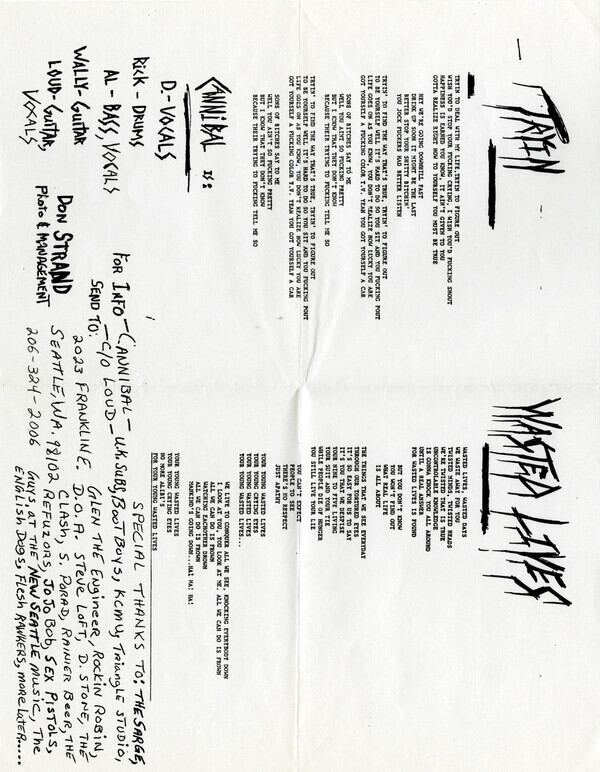 TRYIN
TRYIN TO DEAL WITH MY LIFE, TRYIN TO FIGURE OUT
WISH YOU'D STOP YOUR FUCKING CRYING, I WISH YOU'D FUCKING SHOOT
HAPPINESS IS EARNED YOU KNOW, IT AIN'T GIVEN TO YOU
GOTTA REALIZE RIGHT NOW TO YOURSELF YOU MUST BE TRUE
HEY WE'RE GOING DOWNHILL FAST
DRINK UP SOON IT MIGHT BE THE LAST
BETTER STOP YOUR SHITTY BITCHIN'
YOU JOCK FUCKERS HAD BETTER LISTEN
TRYIN' TO FIND THE WAY THAT'S TRUE, TRYIN' TO FIGURE OUT
TO BE YOURSELF WELL IT'S HARD TO DO SO YOU SIT AND YOU FUCKING POUT
LIFE GOES ON AS YOU KNOW, YOU DON'T REALIZE HOW LUCKY YOU ARE
GOT YOURSELF A FUCKING COLOR T.V. YEAH YOU GOT YOURSELF A CAR
SONS OF BITCHES SAY TO ME
WELL YOU AINT SO FUCKING PRETTY
BUT I KNOW THAT THEY DON'T KNOW
BECAUSE THEIR TRYING TO FUCKING TELL ME SO
TRYIN' TO FIND THE WAY THAT'S TRUE, TRYIN' TO FIGURE OUT
TO BE YOURSELF WELL IT'S HARD TO DO SO YOU SIT AND YOU FUCKING POUT
LIFE GOES ON AS YOU KNOW, YOU DON'T REALIZE HOW LUCKY YOU ARE
GOT YOURSELF A FUCKING COLOR T.V. YEAH YOU GOT YOURSELF A CAR
SONS OF BITCHES SAY TO ME
WELL YOU AIN'T SO FUCKING PRETTY
BUT I KNOW THAT THEY DON'T KNOW
BECAUSE THEIR TRYING TO FUCKING TELL ME SO
WASTED LIVES
WASTED LIVES, WASTED DAYS
WE WASTE AWAY FOR YOU
TWISTED MINDS, TWISTED HEADS
WE'RE TWISTED THAT IS TRUE
UNCONTROLLABLE KINDNESS
IS GONNA KNOCK YOU ALL AROUND
UNTIL A REAL ANSWER
FOR WASTED LIVES IS FOUND
BUT YOU DON'T KNOW
YOU WON'T FIND OUT
WHAT REAL LIFE
IS ALL ABOUT
THE THINGS THAT WE SEE EVERYDAY
THROUGH OUR TORTURED EYES
IT'S SO EASY FOR US TO SAY
IT'S YOU THAT WE DESPISE
YOUR NINE TO FIVE LIVING
YOUR SUIT AND YOUR TIE
WHILE PEOPLE DIE OF HUNGER
YOU STILL LIVE YOUR LIE
YOU CAN'T EXPECT
PEOPLE TO SEE
THERE'S NO RESPECT
JUST APATHY
YOUR YOUNG WASTED LIVES
YOUR YOUNG CRIED EYES
YOUR YOUNG WASTED LIVES
YOUR YOUNG WASTED LIVES...
WE LIVE TO CONQUER ALL WE SEE, KNOCKING EVERYBODY DOWN
I LOOK AT YOU, YOU LOOK AT ME. ALL WE CAN DO IS FROWN
ALL WE CAN DO IS FROWN
WATCHING EACHOTHER DROWN
ALL WE CAN DO IS FROWN
MANKIND'S GOING DOWN...HA! HA! HA!
YOUR YOUNG WASTED LIVES
YOUR YOUNG CRIED EYES
NO MORE ALIBI'S
FOR YOUR YOUNG WASTED LIVES
CANNIBAL is:
D.-VOCALS
Rick-DRUMS
AL-BASS, VOCALS
WALLY-GUITAR
LOUD-GUITAR, VOCALS
DON STRAND
Photo & MANAGEMENT
FOR INFO-CANNIBAL-
SEND TO: -C/O LOUD-
2023 FRANKLIN E.
SEATTLE, WA. 98102
206-324-2006
SPECIAL THANKS TO: THE SARGE,
U.K. SUBS, BOOT BOYS, KCMU, TRIANGLE STUDIO,
GLEN THE ENGINEER, ROCKIN ROBIN,
D.O.A. STEVE LOFT, D. STONE, THE
CLASH, S. PORAD, RAINIER BEER, THE
REFUZORS, JO JO BOB, SEX PISTOLS,
GUYS AT THE NEW SEATTLE MUSIC, THE
ENGLISH DOGS, FLESH RAWKERS, MORE LATER.....